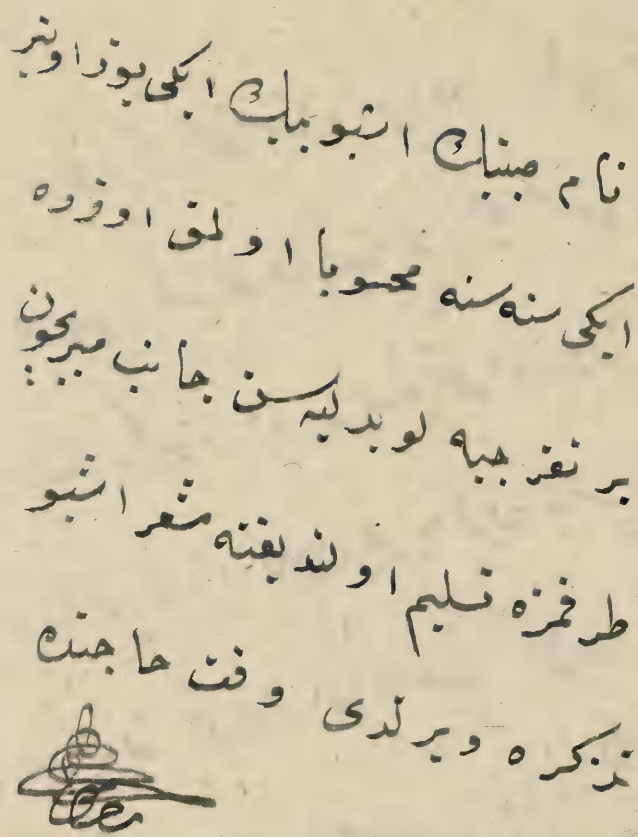 نام جبنك اشبو بيك ايكى يوز اوتوز
ايكى سنه سنه محسوبا اولمق اوزره
بر نفر جبه لو بدليه سن جانب ميريچون
طرفمزه تسليم اولنديغنه مشعر اشبو
تذكره ويرلدى وقت حاجتده